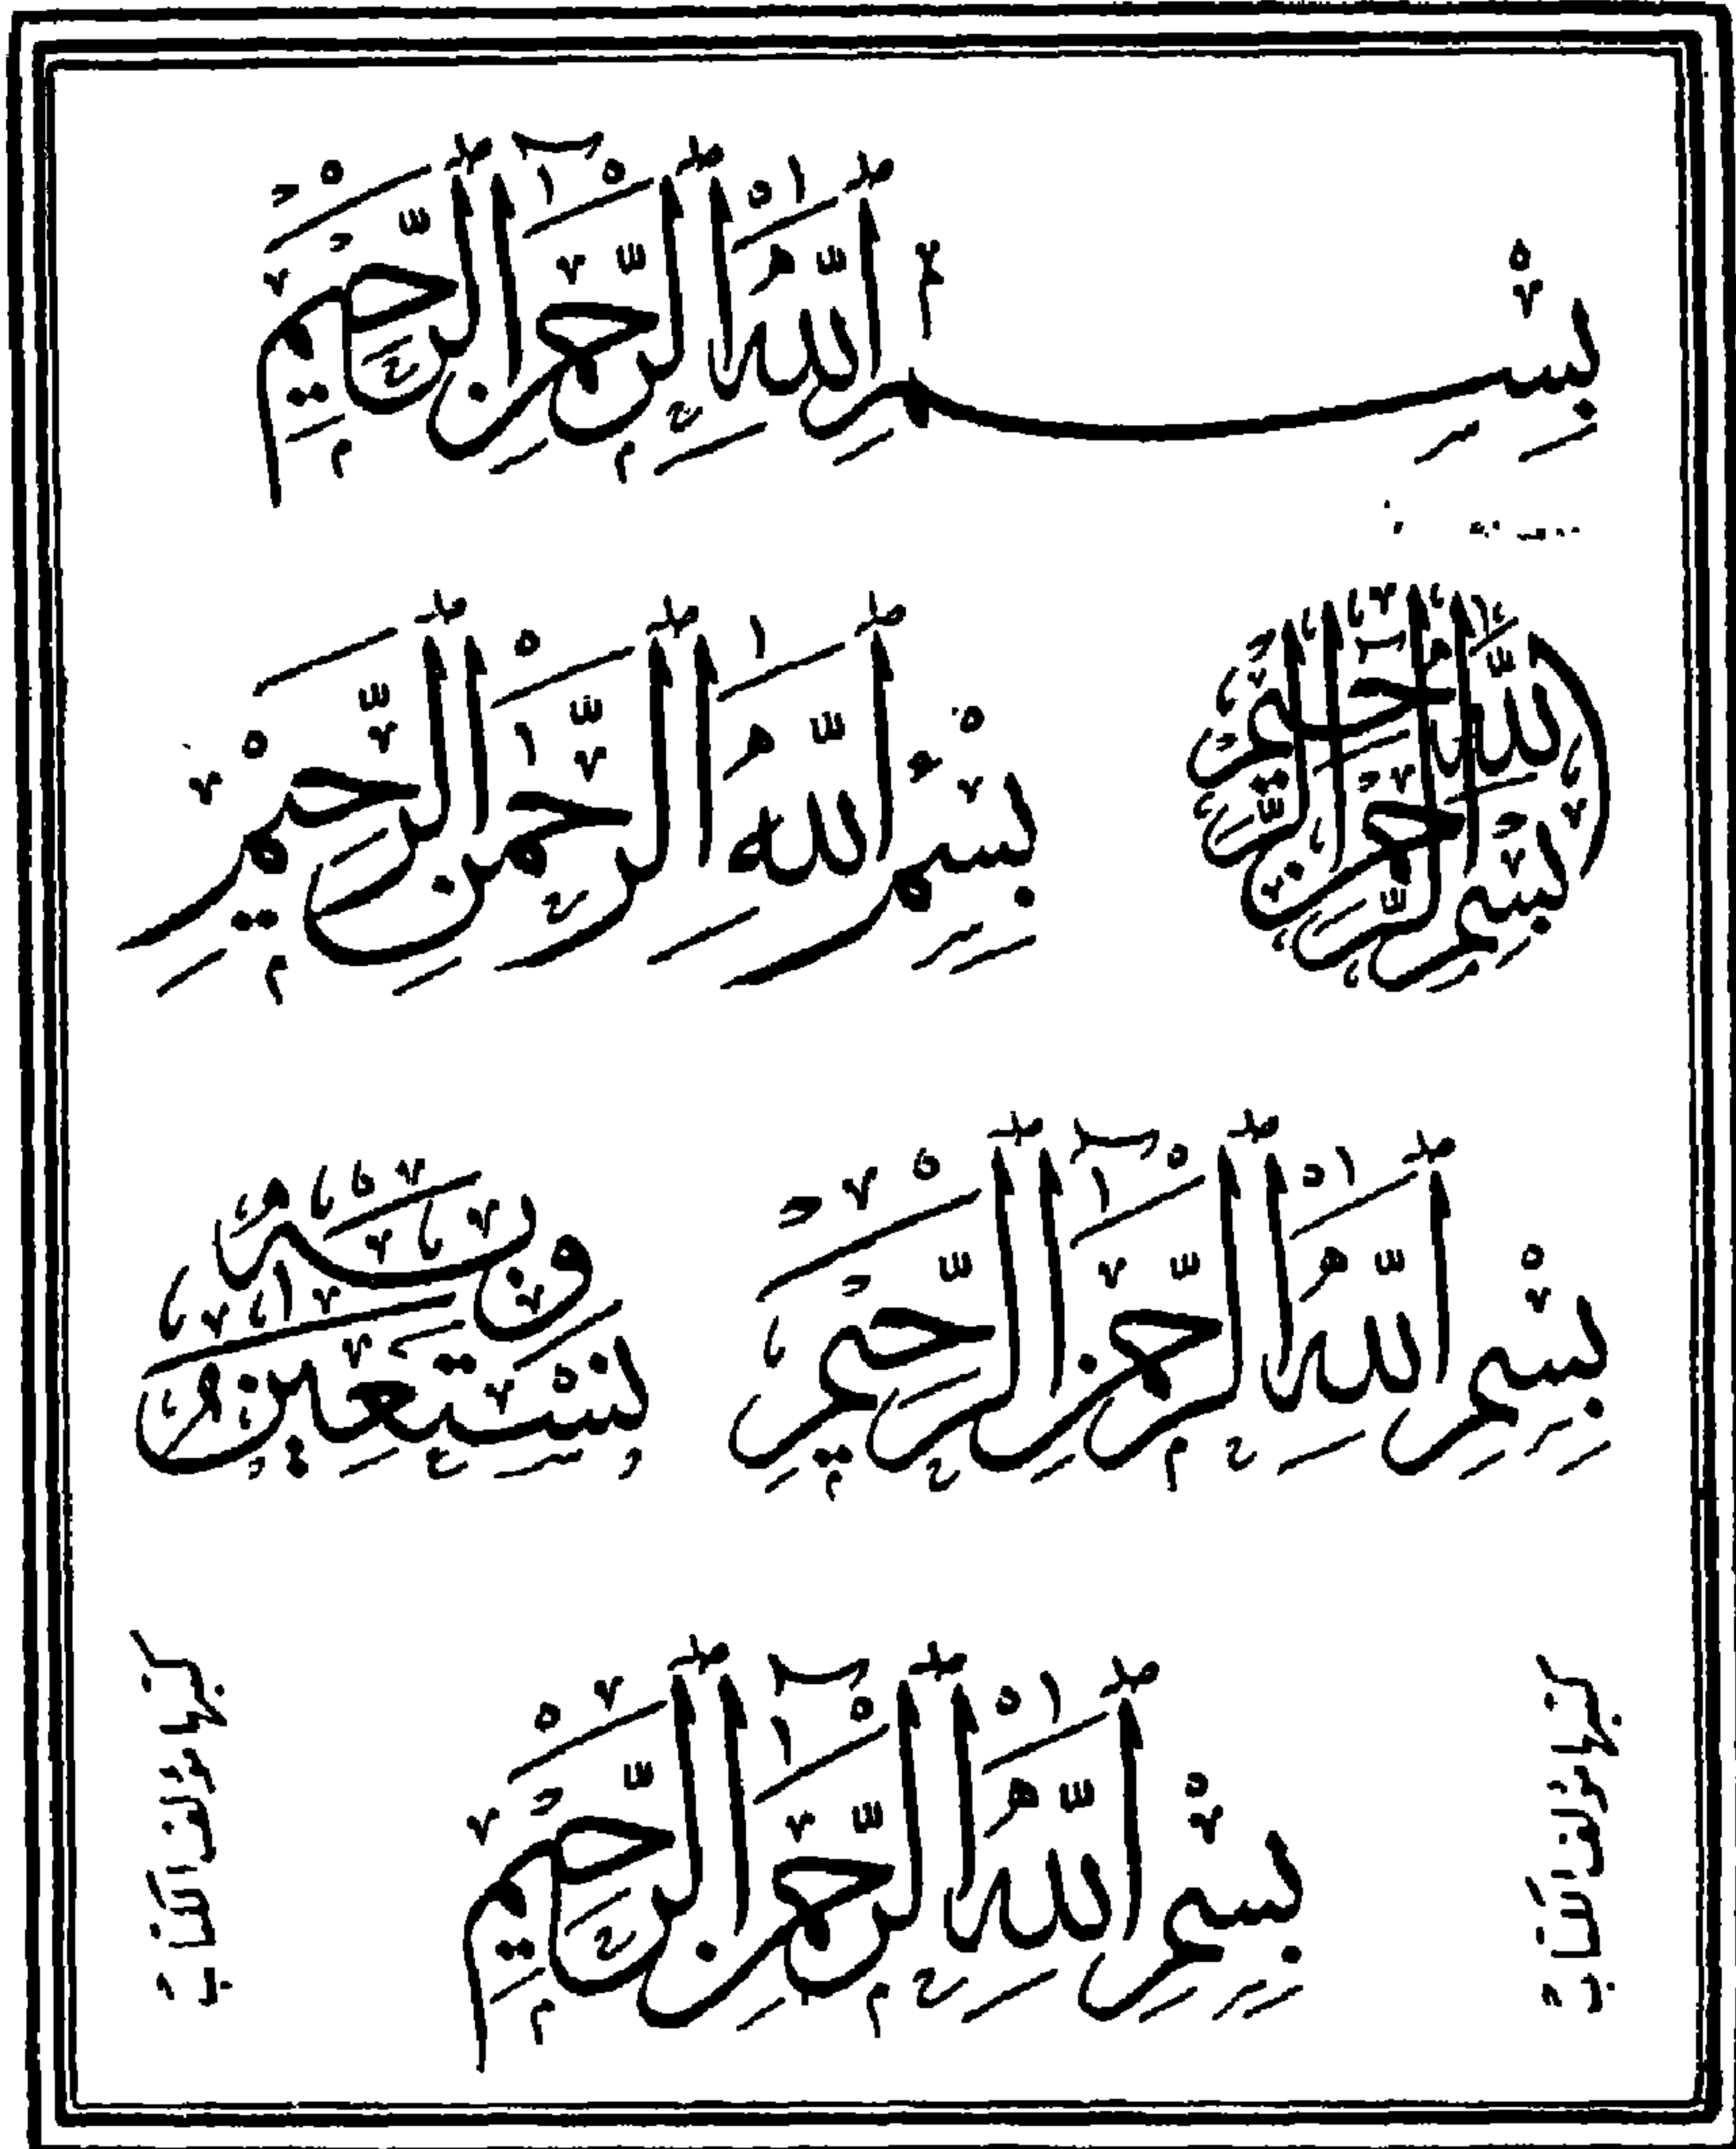 بسم الله الرحمن الرحيم
بسم الله الرحمن الرحيم
بسم الله الرحمن الرحيم
بسم الله الرحمن الرحيم
وبه نستعين
بسم الله الرحمن الرحيم